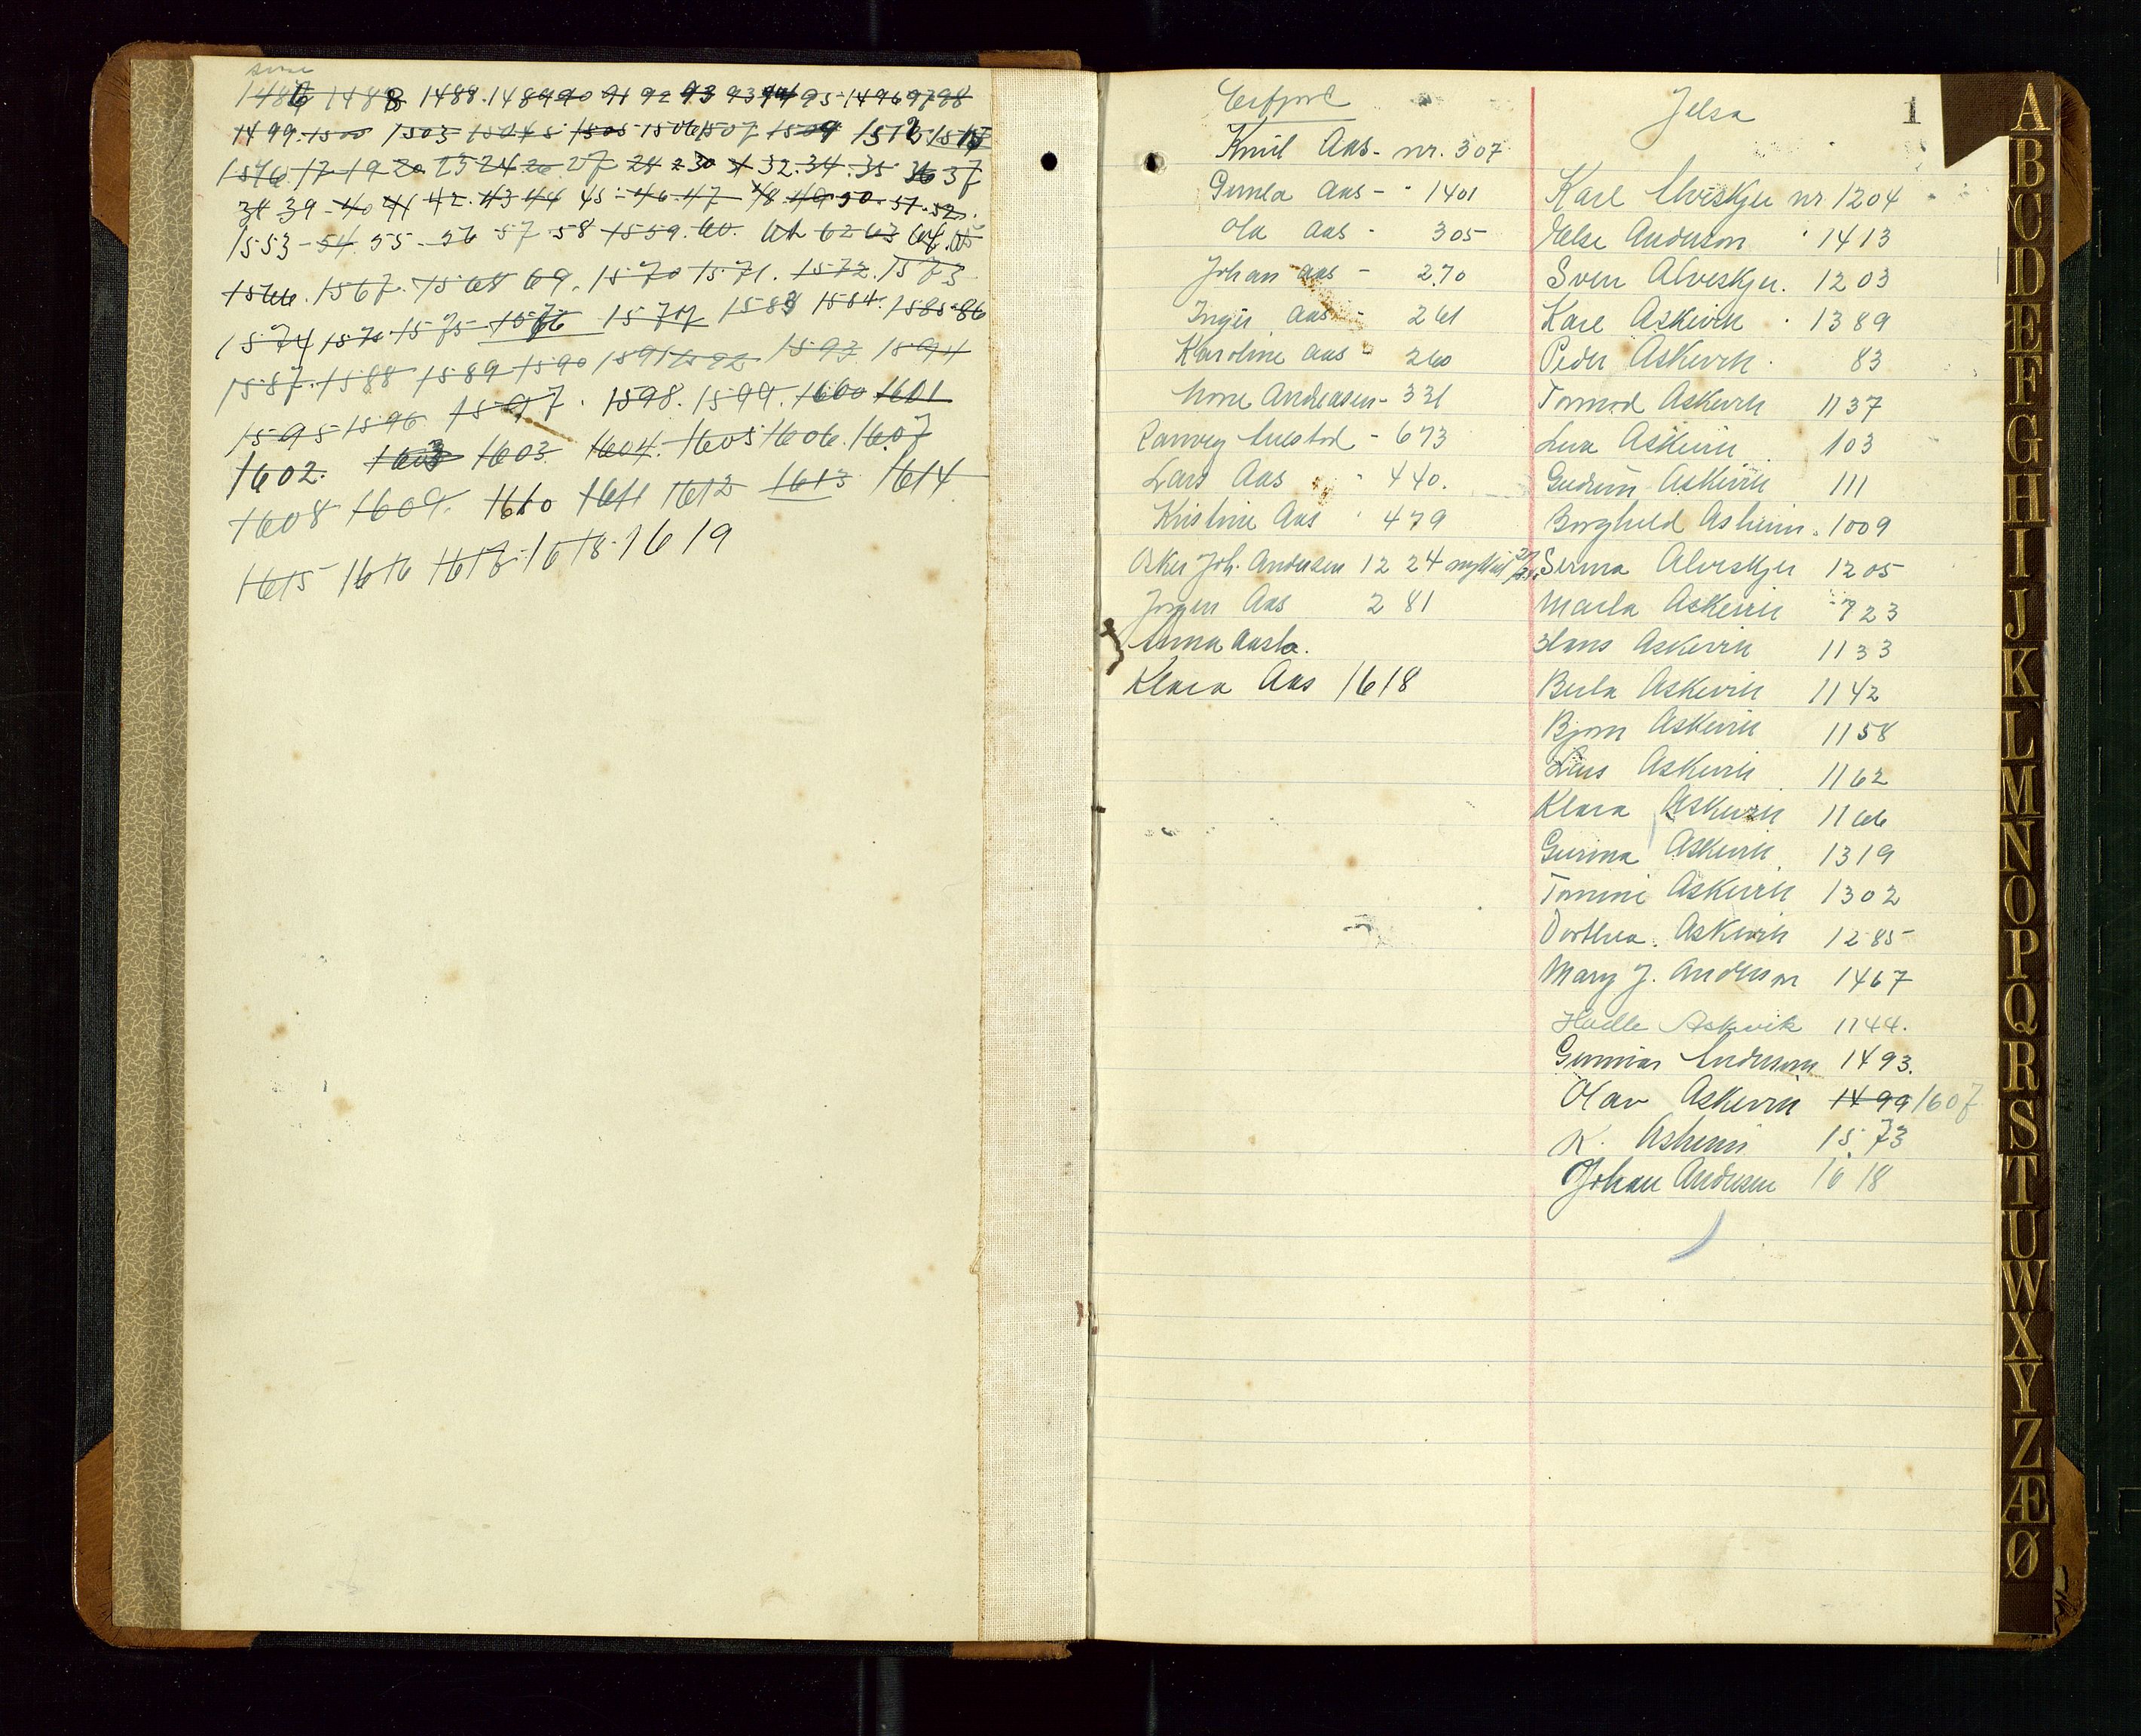 1486 1488 1488. 1489 90 91 92 93 93 94 95 - 1496 97 98
1499. 1500 1503 1504 5. 1505 1506 1507 1509 1512. 1515
1516. 17 19 20. 23 24 26 27 28 2 30 31 32. 34. 35. 36 37
38 39 - 40 41 42. 43 44 45 - 46. 47 48. 49. 50. 51. 52.
1553 - 54. 55 - 56 57. 58 1559. 60. 61. 62 63 64. 65
1566. 1567. 1568 69. 1570 1571. 1572. 1573
1574 1575 1576 1577 1583 1584. 1585. 86
1587. 1588 1589 1590 1591 1592 1593 1594
1595 1596 1597. 1598. 1599. 1600 1601
1602. 1603 1603 1604. 1605 1606. 1607
1608 1609. 1610 1611 1612 1613 1614
1615 1616 1617. 1618. 1619
Erfjord
Knut Aas - nr. 307
Gunla Aas - " 1401
Ola Aas - 305
Johan Aas - 270
Inger Aas - 261
Karoline Aas - 260
Andreasen - 331
Ranveig - 673
Lars Aas " 440.
Kristine Aas " 479
Osker Joh. Andersen 1224
Jorgen Aas 281
Anna
Klara Aas 1618
Jelsa
1
Karl Alveskjer nr 1204
Else Anderson " 1413
Sven Alveskjer. 1203
Kare Askevik " 1389
Peder Askevik. 83
Tormod Askevik 1137
Askevik 103
Gudrun Askevik 111
Borghild Askevik. 1009
Serina Alveskjer 1205
Marta Askevik 723
Hans Askevik 1133
Berta Askevik 1142
Bjorn Askevik 1158
Lars Askevik 1162
Klara Askevik 1166
Gurina Askevik 1319
Tomine Askevik 1302
Dorthea. Askevik 1285
Mary J. Anderson 1467
Helle Askvik 1144.
Gunnar Anderson 1493.
Olav Askevik 1499 1607
K. Askevik 1573
Johan Andersen 1618
A
B
C
D
E
F
G
H
I
J
K
L
M
N
O
P
Q
R
S
T
U
W
X
Y
Z
Æ
Ø